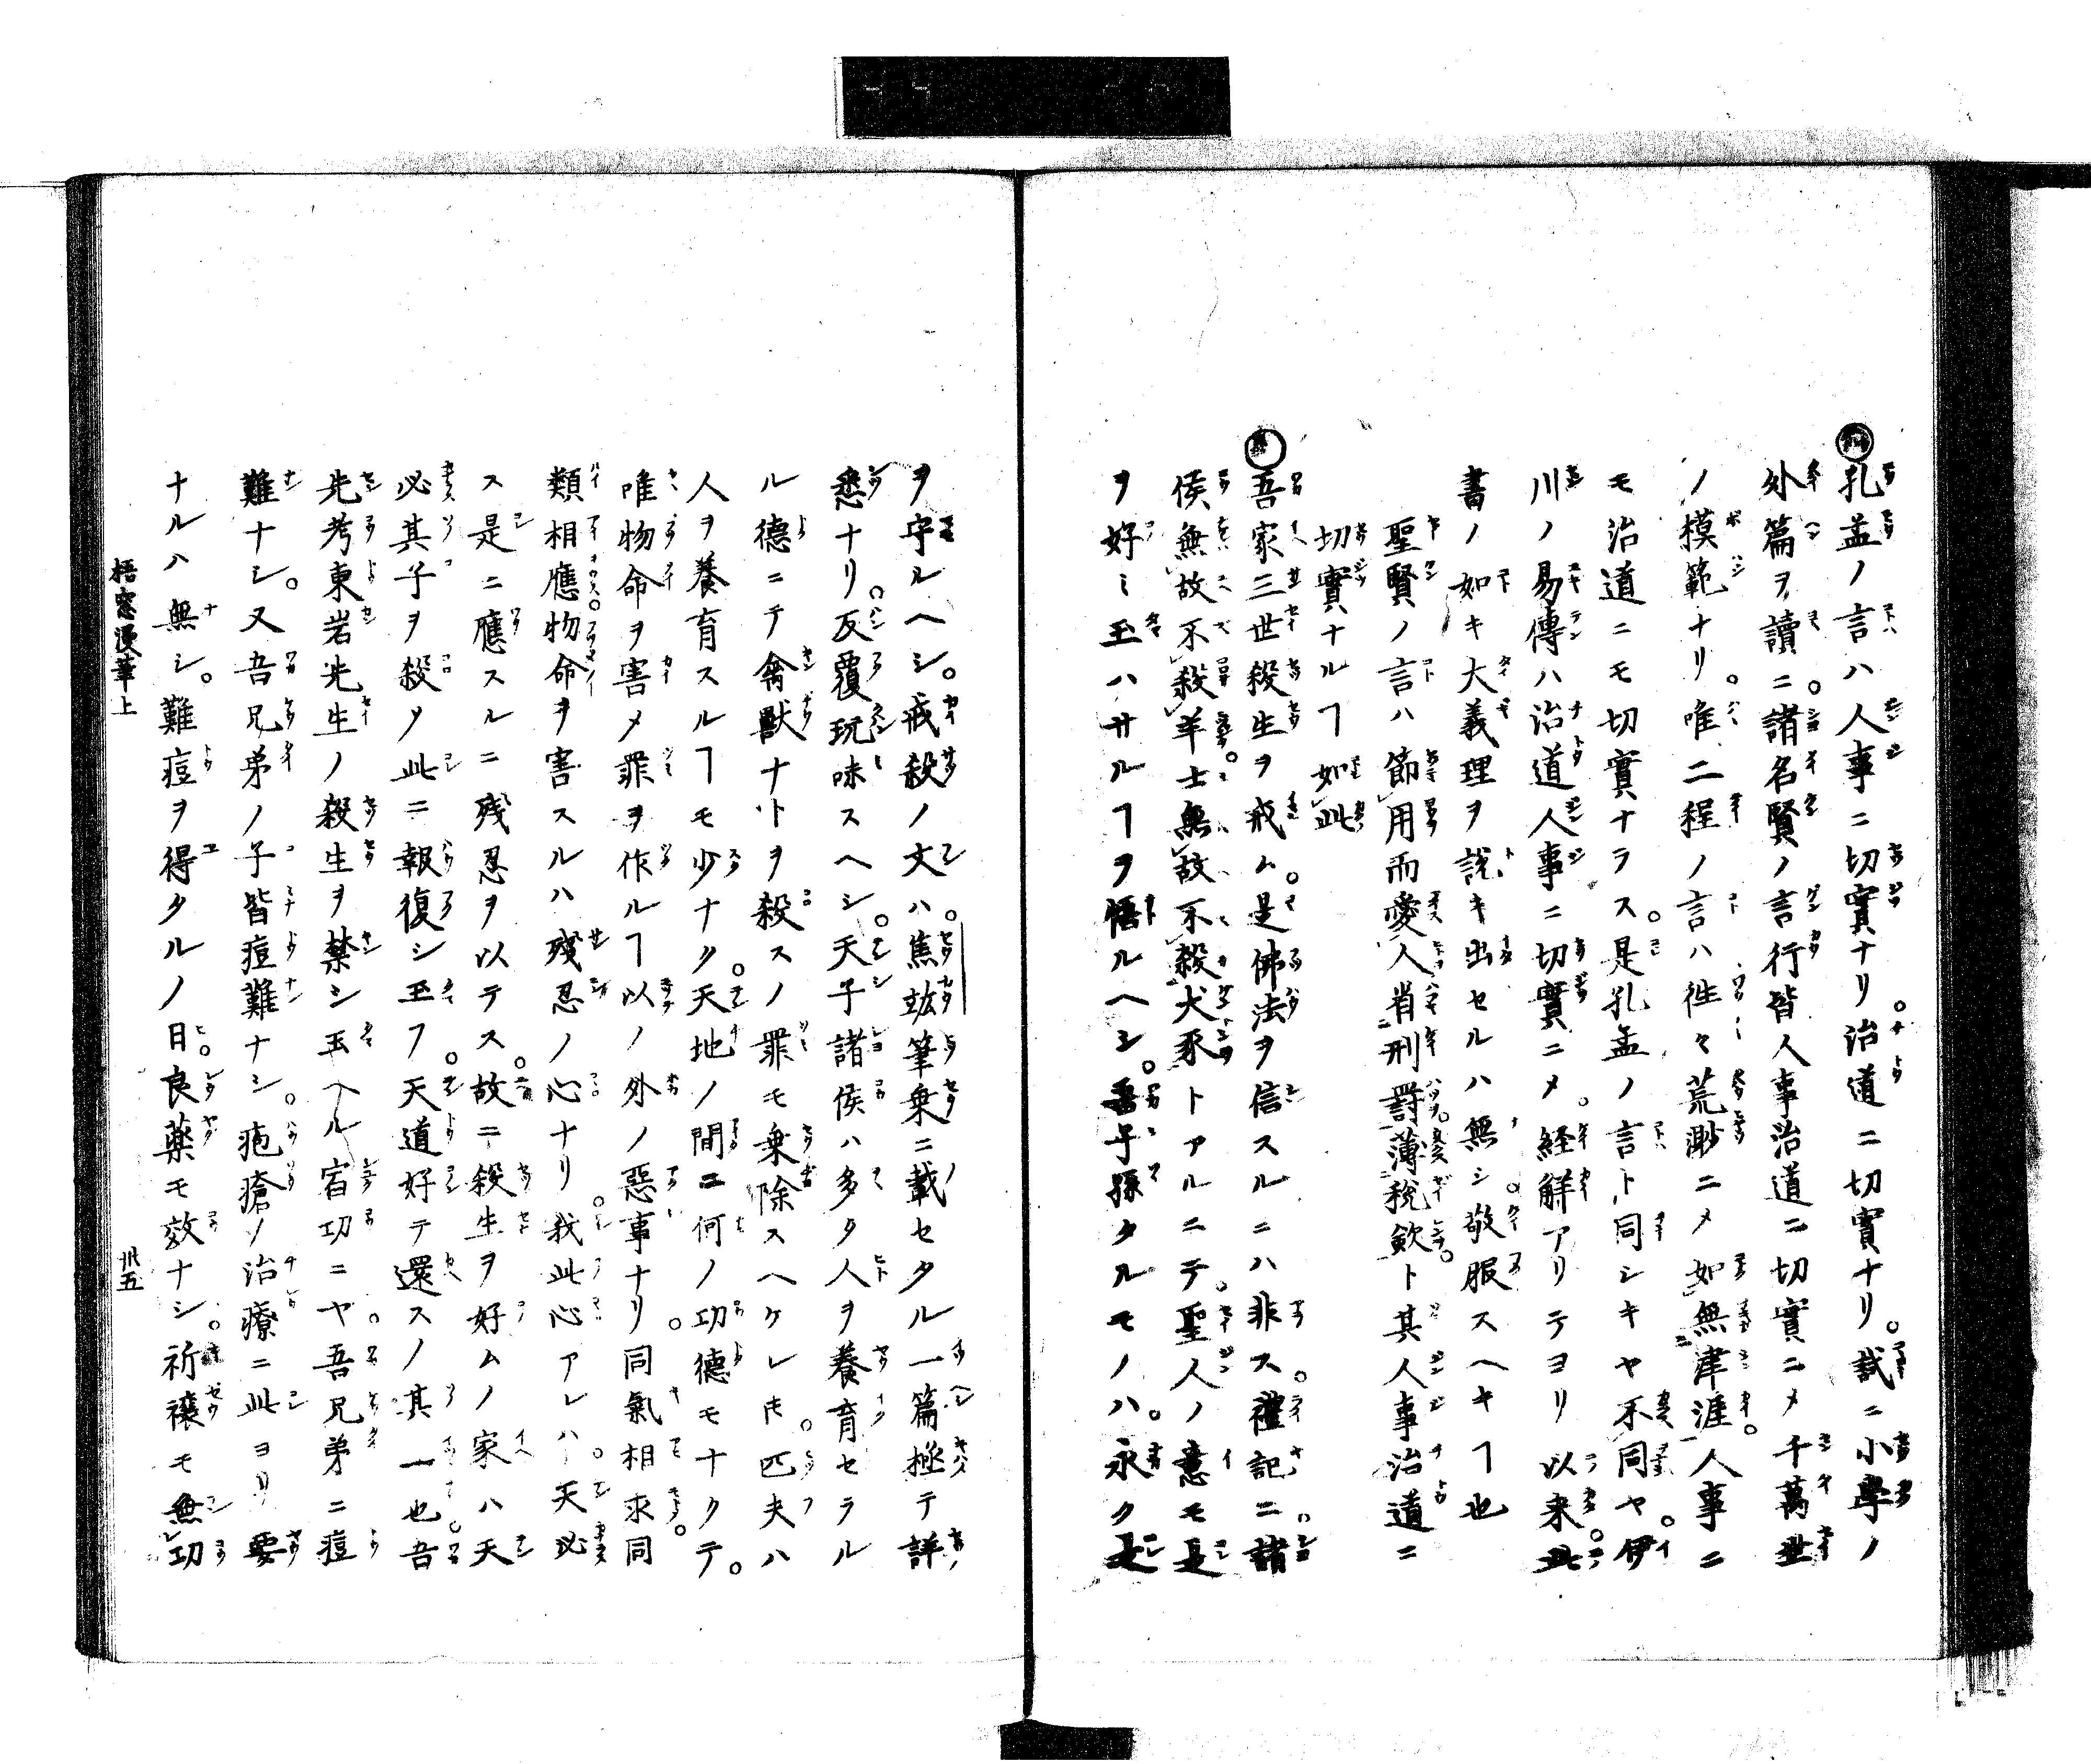 孔孟ノ言ハ人事ニ切實ナリ。治道ニ切實ナリ。試ニ小學ノ
外篇ヲ讀ニ。諸名賢ノ言行皆人事治道ニ切實ニメ千萬世
ノ模範ナリ。唯二程ノ言ハ徃々荒渺ニメ如無津涯。人事ニ
モ治道ニモ切實ナラス。是孔孟ノ言ト同シキヤ不同ヤ。伊
川ノ易傳ハ治道人事ニ切實ニメ。経觧アリテヨリ以来。此
書ノ如キ大義理ヲ説キ出セルハ無シ。敬服スヘキヿ也
聖賢ノ言ハ節用而愛人省刑罸。薄税歛。ト其人事治道ニ
切實ナルヿ如此
吾家三世殺生ヲ戒ム。是佛法ヲ信スルニハ非ス。禮記ニ。諸
侯無故不殺羊。士無故不殺犬豕トアルニテ。聖人ノ意モ是
ヲ好ミ玉ハサルヿヲ悟ルヘシ。吾子孫タルモノハ。永ク是
ヲ守ルヘシ。戒殺ノ文ハ。焦竑筆乗ニ載セタル一篇極テ詳
悉ナリ。反覆玩味スヘシ。天子諸侯ハ多タ人ヲ養育セラル
ル德ニテ禽獸ナトヲ殺スノ罪モ乗除スヘケレ𪜈。匹夫ハ
人ヲ養育スルヿモ少ナク。天地ノ間ニ何ノ功德モナクテ。
唯物命ヲ害メ罪ヲ作ルヿ以ノ外ノ惡事ナリ。同氣相求同
類相應。物命ヲ害スルハ殘忍ノ心ナリ。我此心アレハ。天必
ス是ニ應スルニ残忍ヲ以テス。故ニ殺生ヲ好ムノ家ハ天
必其子ヲ殺メ此ニ報復シ玉フ。天道好テ還スノ其一也。吾
先考東岩先生ノ殺生ヲ禁シ玉ヘル宿功ニヤ。吾兄弟ニ痘
難ナシ。又吾兄弟ノ子皆痘難ナシ。疱瘡ノ治療ニ此ヨリ要
ナルハ無シ。難痘ヲ得タルノ日。良藥モ效ナシ。祈禳モ無功
梧窓漫筆上
卅五